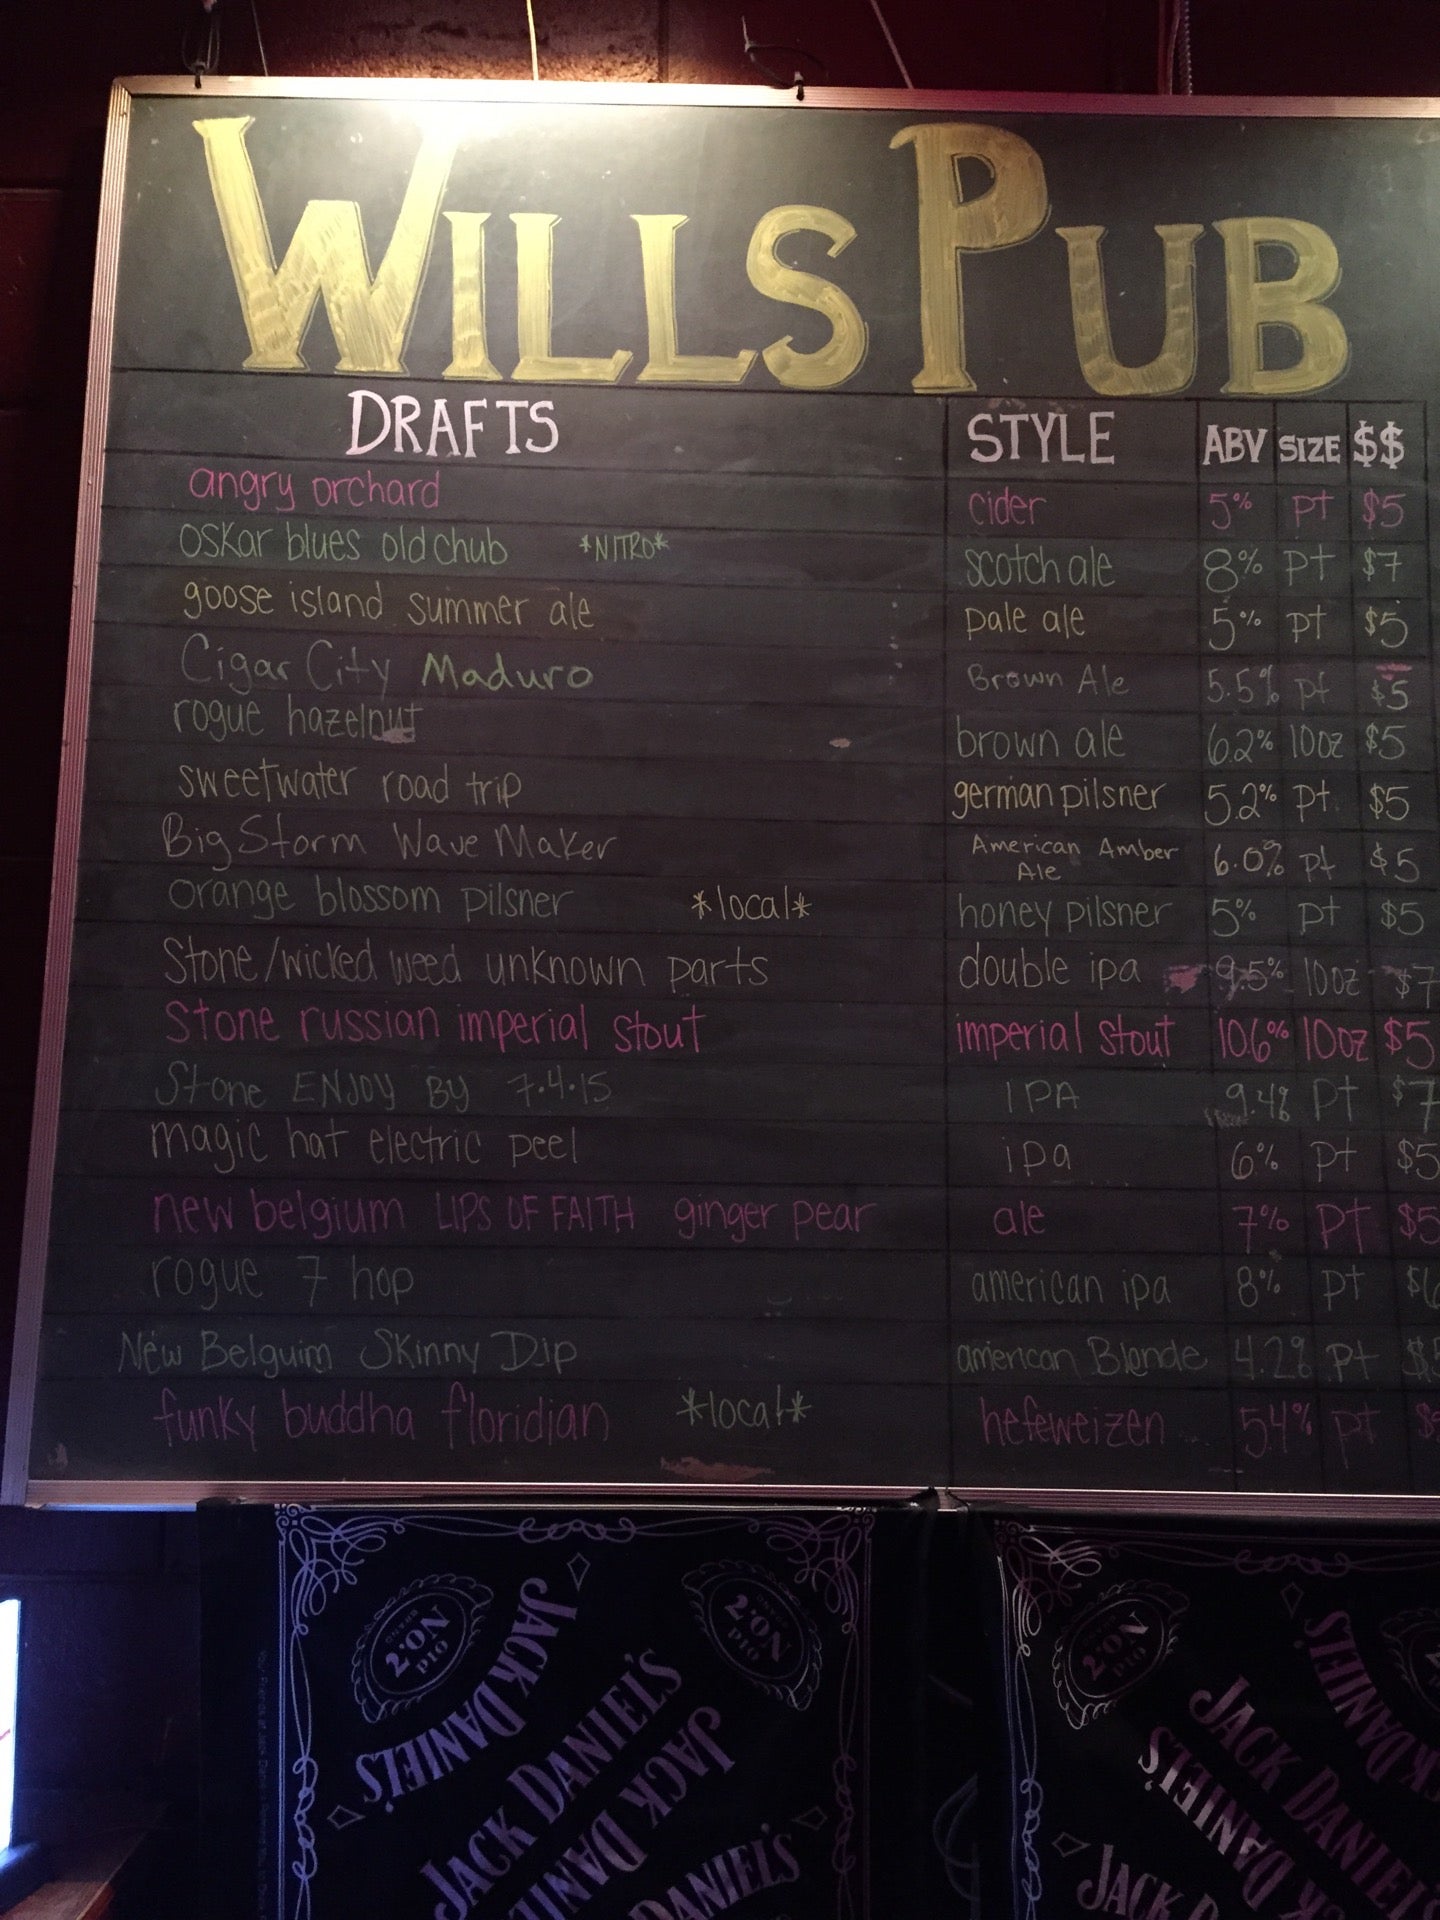 WILLS PUB
DRAFTS STYLE ABV SIZE $$
angry orchard cider 5% pt $5
oskar blues old chub *NITRO* scotch ale 8% pt $7
goose island summer ale pale ale 5% pt $5
Cigar City Maduro Brown Ale 5.5% pt $5
rogue hazelnut brown ale 6.2% 10oz $5
sweetwater road trip german pilsner 5.2% pt. $5
Big Storm Wave Maker American Amber Ale 6.0% pt $5
orange blossom pilsner *local* honey pilsner 5% pt $5
Stone/wicked weed unknown parts double ipa 9.5% 10oz $7
Stone russian imperial stout imperial stout 10.6% 10oz $5
Stone ENJOY BY 7.4.15 IPA 9.4% pt $7
magic hat electric peel ipa 6% pt $5
new belgium LIPS OF FAITH ginger pear ale 7% pt $5
rogue 7 hop american ipa 8% pt
New Belguim Skinny Dip american Blonde 4.2% pt
funky buddha floridian *local* hefeweizen 5.4% pt
OLD No.7 BRAND
JACK DANIEL'S
JACK DANIEL'S
JACK DANIEL'S
DANIEL'S
OLD No.7 BRAND
OLD No.7 BRAND
JACK DANIEL'S
JACK DANIEL'S
JACK DANIEL'S
JACK